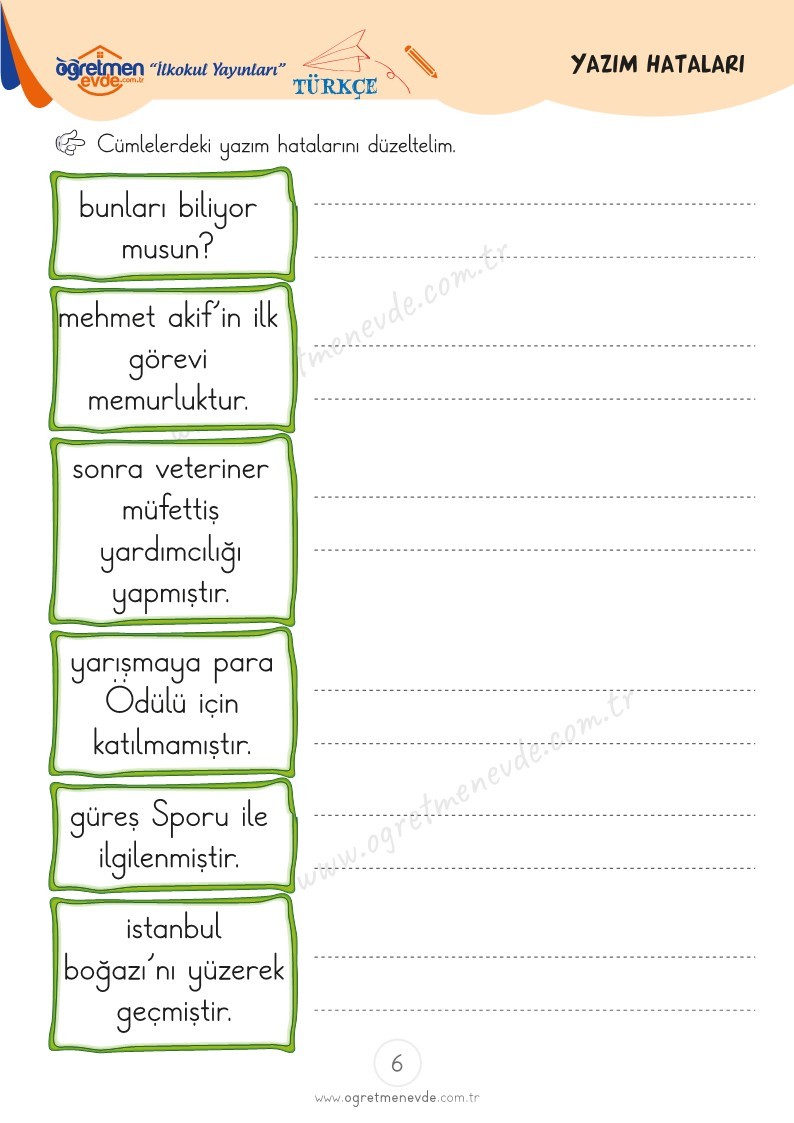 öğretmen
evde.com.tr
"İlkokul Yayınları"
TÜRKÇE
YAZIM HATALARI
Cümlelerdeki yazım hatalarını düzeltelim.
bunları biliyor
musun?
mehmet akif'in ilk
görevi
memurluktur.
sonra veteriner
müfettiş
yardımcılığı
yapmıştır.
yarışmaya para
Ödülü için
katılmamıştır.
güreş Sporu ile
ilgilenmiştir.
istanbul
boğazı'nı yüzerek
geçmiştir.
tmenevde.com.tr
www.ogretmenevde.com.tr
6
www.ogretmenevde.com.tr